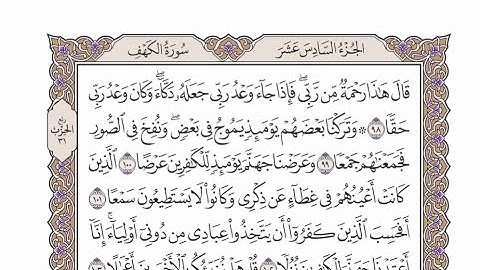 الجُزْءُ السَّادِسَ عَشَرَ
سُورَةُ الكَهْفِ
قَالَ هَٰذَا رَحْمَةٌ مِّن رَّبِّي ۖ فَإِذَا جَاءَ وَعْدُ رَبِّي جَعَلَهُ دَكَّاءَ ۖ وَكَانَ وَعْدُ رَبِّي
حَقًّا ٩٨ ۞ وَتَرَكْنَا بَعْضَهُمْ يَوْمَئِذٍ يَمُوجُ فِي بَعْضٍ ۖ وَنُفِخَ فِي الصُّورِ
فَجَمَعْنَاهُمْ جَمْعًا ٩٩ وَعَرَضْنَا جَهَنَّمَ يَوْمَئِذٍ لِّلْكَافِرِينَ عَرْضًا ١٠٠ الَّذِينَ
كَانَتْ أَعْيُنُهُمْ فِي غِطَاءٍ عَن ذِكْرِي وَكَانُوا لَا يَسْتَطِيعُونَ سَمْعًا ١٠١
أَفَحَسِبَ الَّذِينَ كَفَرُوا أَن يَتَّخِذُوا عِبَادِي مِن دُونِي أَوْلِيَاءَ ۚ إِنَّا
رُبْع
الحِزْب
٣١